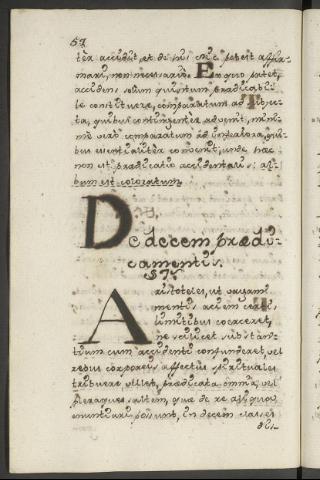 57
ter accidat, et de
mari, non necessario. Ex quo patet,
accidens solum quintum prædicabi-
le constituere, comparatum ad subjec-
ta, quibus contingenter advenit, mini-
me vero comparatum ad inferiora, qui-
bus essentialiter convenit, unde hæc
non est prædicatio accidentalis: al-
bum est coloratum.
De decem prædi-
camentis.
§ 7.
Aristoteles, ut vagam
mentis aciem certis
limitibus coerceret,
ne scilicet substan-
tiam cum accidenti confunderet, vel
rebus corporeis affectus spirituales
tribuere vellet, prædicata omnia, vel
pleraque saltem, quæ de re aliqua
enuntiari possunt, in decem classes